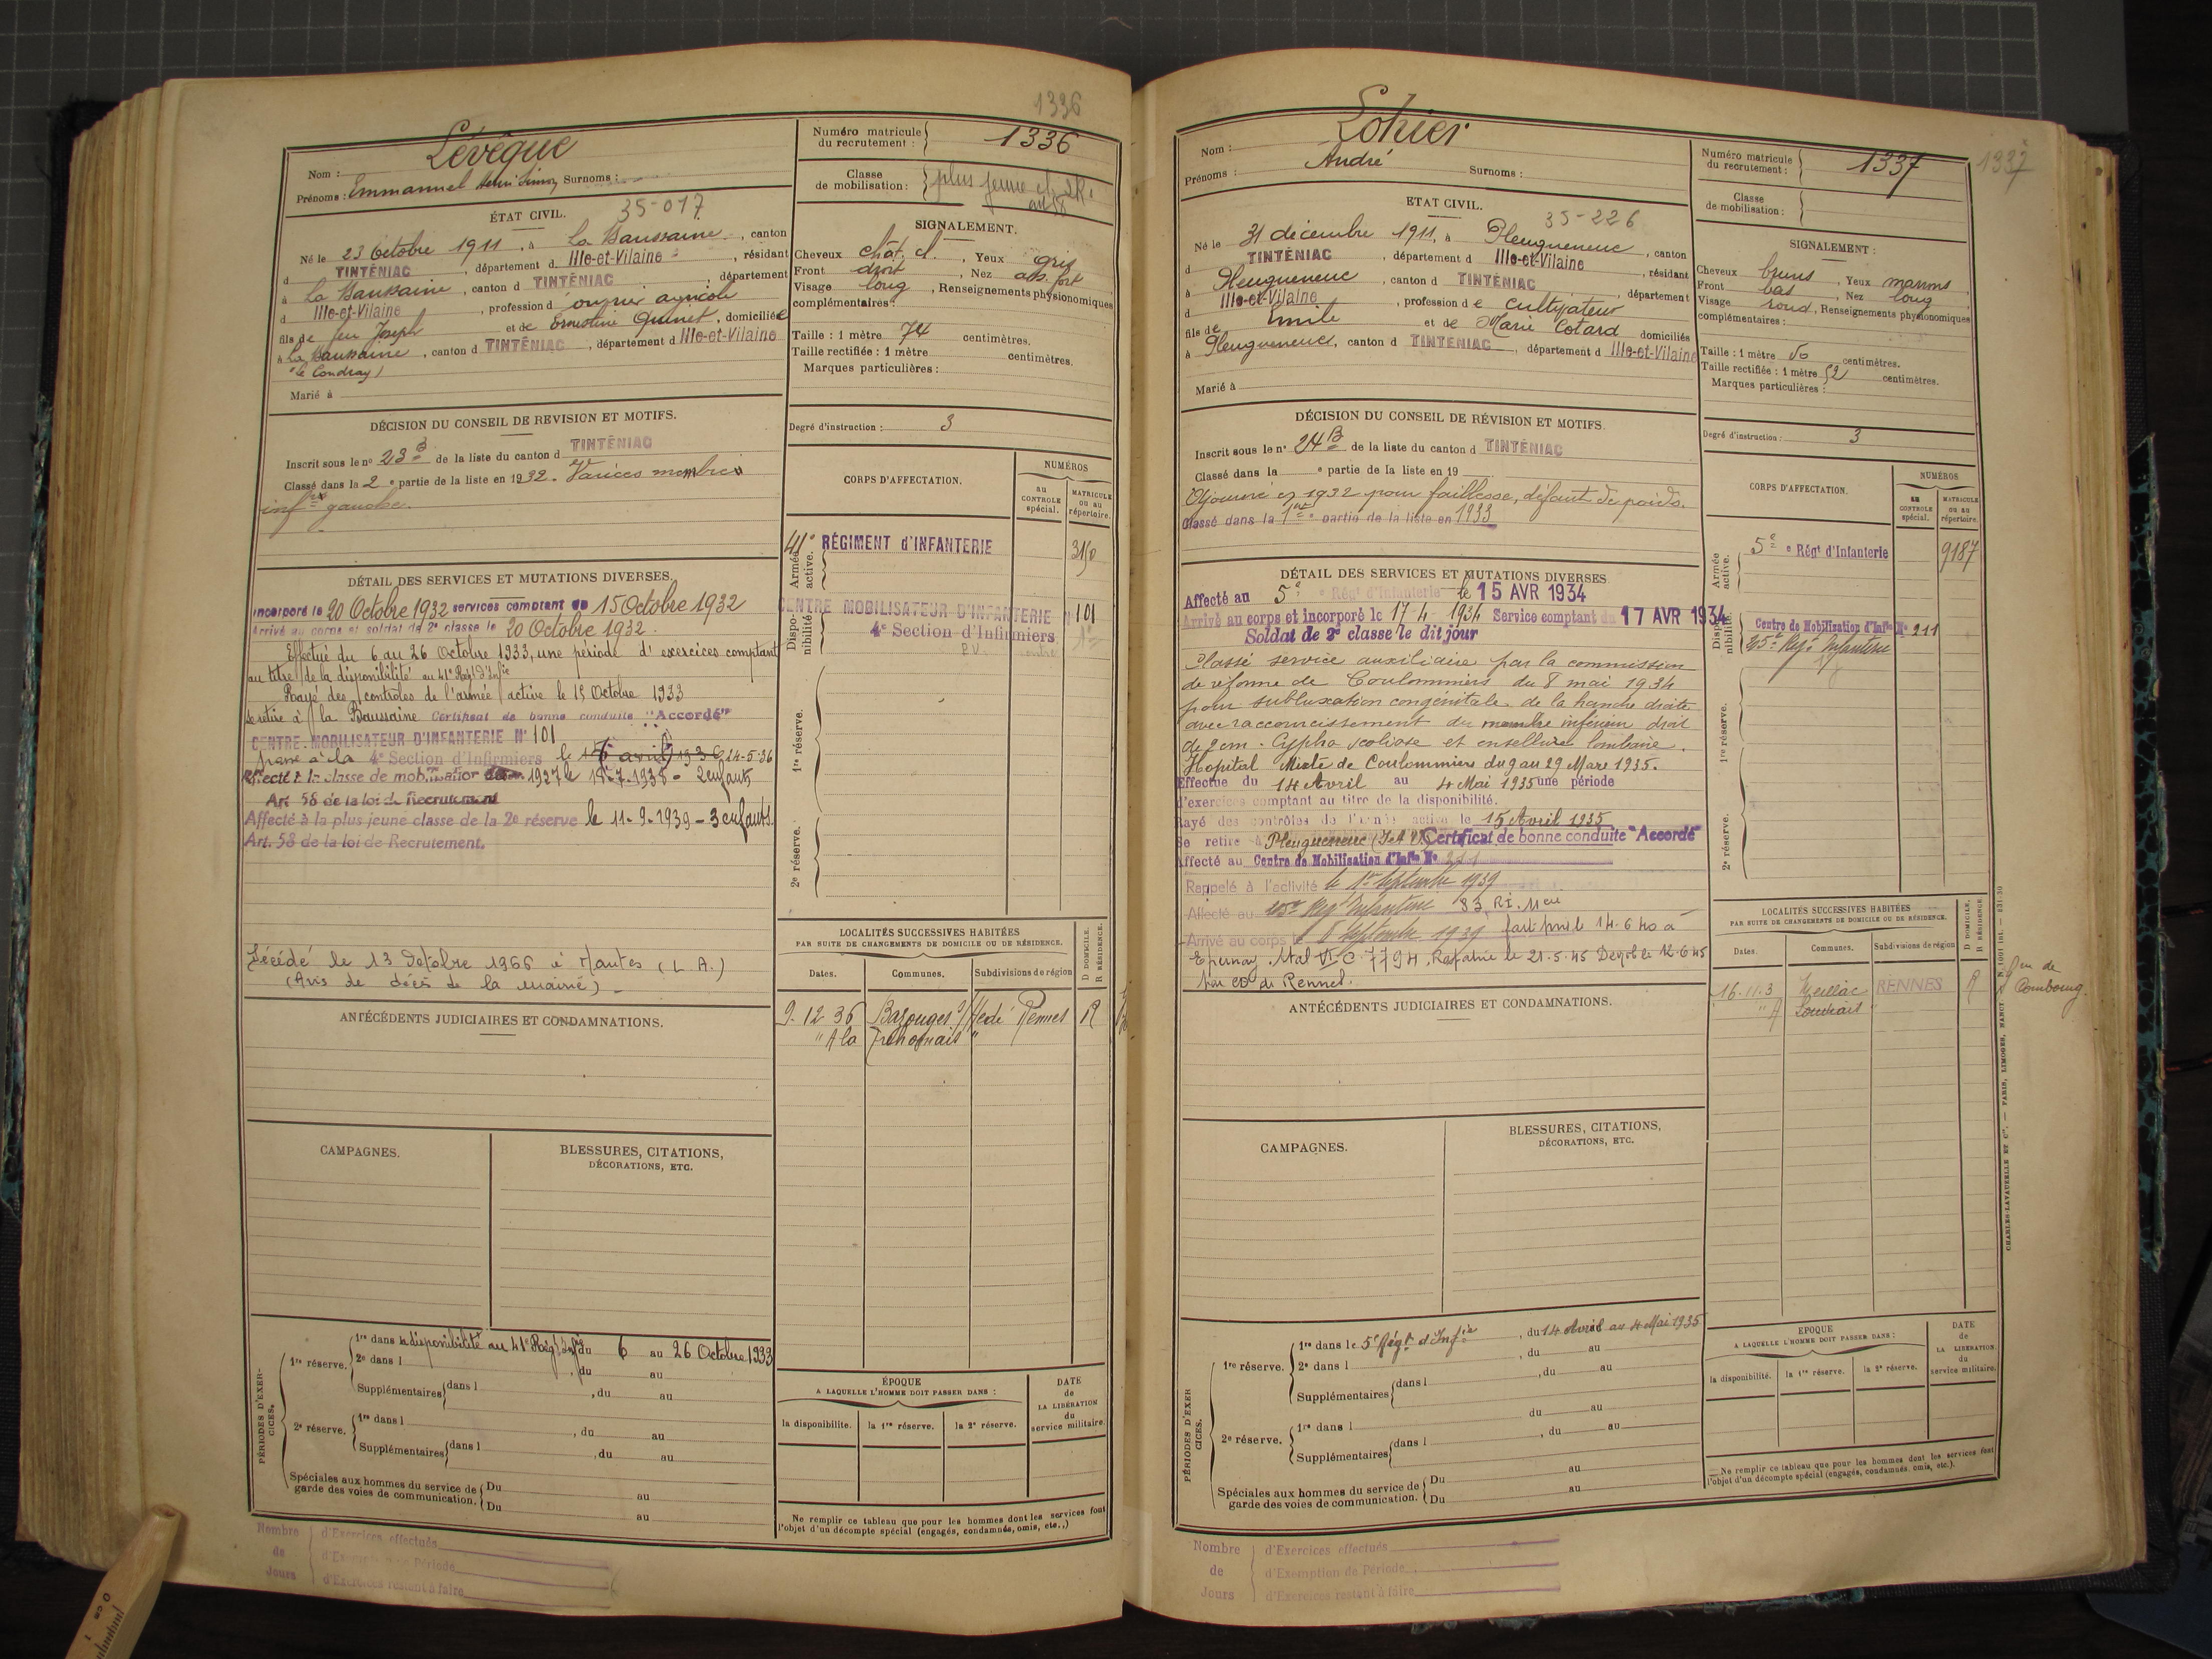 1336
Nom : Lévêque
Prénoms : Emmanuel Henri Simon Surnoms :
Numéro matricule du recrutement : 1336
Classe de mobilisation : plus jeune cl. 2R.
art 58
ÉTAT CIVIL. 35-017
Né le 23 Octobre 1911, à La Baussaine, canton
d TINTÉNIAC, département d Ille-et-Vilaine, résidant
à La Baussaine, canton d TINTÉNIAC, département
d Ille-et-Vilaine, profession d'ouvrier agricole
fils de feu Joseph et de Ernestine Quinet, domiciliée
à La Baussaine, canton d TINTÉNIAC, département d Ille-et-Vilaine
(le Coudray)
Marié à
SIGNALEMENT.
Cheveux chât. cl., Yeux gris
Front droit, Nez fort
Visage long, Renseignements physionomiques
complémentaires :
Taille : 1 mètre 74 centimètres.
Taille rectifiée : 1 mètre centimètres.
Marques particulières :
DÉCISION DU CONSEIL DE REVISION ET MOTIFS.
Inscrit sous le n° 23 B de la liste du canton d TINTÉNIAC
Classé dans la 2e partie de la liste en 1932. Varices membre
infr gauche.
Degré d'instruction : 3
CORPS D'AFFECTATION.
NUMÉROS
au CONTROLE spécial.
MATRICULE ou au répertoire.
Armée active.
41e RÉGIMENT d'INFANTERIE
Dispo-nibilité.
CENTRE MOBILISATEUR D'INFANTERIE N° 101
4e Section d'Infirmiers
1re réserve.
2e réserve.
DÉTAIL DES SERVICES ET MUTATIONS DIVERSES.
Incorporé le 20 Octobre 1932 services comptant du 15 Octobre 1932
Arrivé au corps et soldat de 2e classe le 20 Octobre 1932.
Effectué du 6 au 26 Octobre 1933, une période d'exercices comptant
au titre de la disponibilité au 41e Régt d'Infie
Rayé des contrôles de l'armée active le 15 Octobre 1933
se retire à la Baussaine Certificat de bonne conduite "Accordé"
CENTRE MOBILISATEUR D'INFANTERIE N° 101
passé à la 4e Section d'Infirmiers le 16 avril 1936 24-5-36
Affecté à la classe de mobilisation 1927 le 18-7-1938 - 2 enfants
Art 58 de la loi de Recrutement
Affecté à la plus jeune classe de la 2e réserve le 11-9-1939 - 3 enfants.
Art. 58 de la loi de Recrutement.
Décédé le 13 Octobre 1966 à Nantes (L.A.)
(Avis de décès de la mairie) -
LOCALITÉS SUCCESSIVES HABITÉES
PAR SUITE DE CHANGEMENTS DE DOMICILE OU DE RÉSIDENCE.
D DOMICILE. R RÉSIDENCE.
Dates. Communes. Subdivisions de région
9-12-36 Bazouges s/ Hédé Rennes R
" A la
ANTÉCÉDENTS JUDICIAIRES ET CONDAMNATIONS.
CAMPAGNES.
BLESSURES, CITATIONS,
DÉCORATIONS, ETC.
PÉRIODES D'EXERCICES.
1re réserve. 1re dans la disponibilité au 41e Régt Infie du 6 au 26 Octobre 1933
2e dans l , du au
Supplémentaires dans l , du au
2e réserve. 1re dans l , du au
Supplémentaires dans l , du au
Spéciales aux hommes du service de garde des voies de communication. Du au
Du au
ÉPOQUE
A LAQUELLE L'HOMME DOIT PASSER DANS :
la disponibilité. la 1re réserve. la 2e réserve.
DATE de LA LIBÉRATION du service militaire.
Ne remplir ce tableau que pour les hommes dont les services font
l'objet d'un décompte spécial (engagés, condamnés, omis, etc.,)
Nombre de Jours
d'Exercices effectués
d'Exemption de Période
d'Exercices restant à faire
Nom : Lohier
Prénoms : André Surnoms :
Numéro matricule du recrutement : 1337
1337
Classe de mobilisation :
ETAT CIVIL. 35-226
Né le 31 décembre 1911, à Pleugueneuc, canton
d TINTÉNIAC, département d Ille-et-Vilaine, résidant
à Pleugueneuc, canton d TINTÉNIAC, département
d Ille-et-Vilaine, profession de cultivateur
fils de Emile et de Marie Cotard domiciliés
à Pleugueneuc, canton d TINTÉNIAC, département d Ille-et-Vilaine
Marié à
SIGNALEMENT :
Cheveux bruns, Yeux marrons,
Front bas, Nez long
Visage rond, Renseignements physionomiques
complémentaires :
Taille : 1 mètre 50 centimètres.
Taille rectifiée : 1 mètre 52 centimètres.
Marques particulières :
DÉCISION DU CONSEIL DE RÉVISION ET MOTIFS.
Inscrit sous le n° 24 B de la liste du canton d TINTÉNIAC
Classé dans la e partie de la liste en 19
Ajourné en 1932 pour faiblesse, défaut de poids.
Classé dans la 1re partie de la liste en 1933
Degré d'instruction : 3
CORPS D'AFFECTATION.
NUMÉROS
au CONTROLE spécial.
MATRICULE ou au répertoire.
Armée active.
5e Régt d'Infanterie 9187
Disponibilité.
Centre de Mobilisation d'Infie N° 211
1re réserve.
2e réserve.
DÉTAIL DES SERVICES ET MUTATIONS DIVERSES
Affecté au 5e Régt d'Infanterie le 15 AVR 1934
Arrivé au corps et incorporé le 17-4-1934 Service comptant du 17 AVR 1934
Soldat de 2e classe le dit jour
Classé service auxiliaire par la commission
de réforme de Coulommiers du 8 mai 1934
pour subluxation congénitale de la hanche droite
avec raccourcissement du membre inférieur droit
de 2 cm. Cypho scoliose et ensellure lombaire.
Hopital Mixte de Coulommiers du 9 au 29 Mars 1935.
Effectue du 14 Avril au 4 Mai 1935 une période
d'exercices comptant au titre de la disponibilité.
Rayé des contrôles de l'armée active le 15 Avril 1935
Se retire à Pleugueneuc (I et V) Certificat de bonne conduite "Accordé"
Affecté au Centre de Mobilisation d'Infie N° 211
Rappelé à l'activité le 1er Septembre 1939
Affecté au Regt Infanterie 83 R.I.
Arrivé au corps le 8 Septembre 1939 fait pris le 14-6-40 à
Epernay. Stal VI C 7794, Rapatrié le 21-5-45 Démob le 12-6-45
par CD de Rennes.
LOCALITÉS SUCCESSIVES HABITÉES
PAR SUITE DE CHANGEMENTS DE DOMICILE OU DE RÉSIDENCE.
D DOMICILE. R RÉSIDENCE.
Dates. Communes. Subdivisions de région
16.11.3 Meillac RENNES R
de Combourg.
ANTÉCÉDENTS JUDICIAIRES ET CONDAMNATIONS.
CAMPAGNES.
BLESSURES, CITATIONS,
DÉCORATIONS, ETC.
PÉRIODES D'EXERCICES.
1re réserve. 1re dans le 5e Régt d'Infie, du 14 Avril au 4 Mai 1935
2e dans l , du au
Supplémentaires dans l , du au
2e réserve. 1re dans l du au
Supplémentaires dans l , du au
Spéciales aux hommes du service de garde des voies de communication. Du au
Du au
EPOQUE
A LAQUELLE L'HOMME DOIT PASSER DANS :
la disponibilité. la 1re réserve. la 2e réserve.
DATE de LA LIBÉRATION du service militaire.
Ne remplir ce tableau que pour les hommes dont les services font
l'objet d'un décompte spécial (engagés, condamnés, omis, etc.).
CHARLES-LAVAUZELLE ET Cie. — PARIS, LIMOGES, NANCY
Nombre de Jours
d'Exercices effectués
d'Exemption de Période
d'Exercices restant à faire